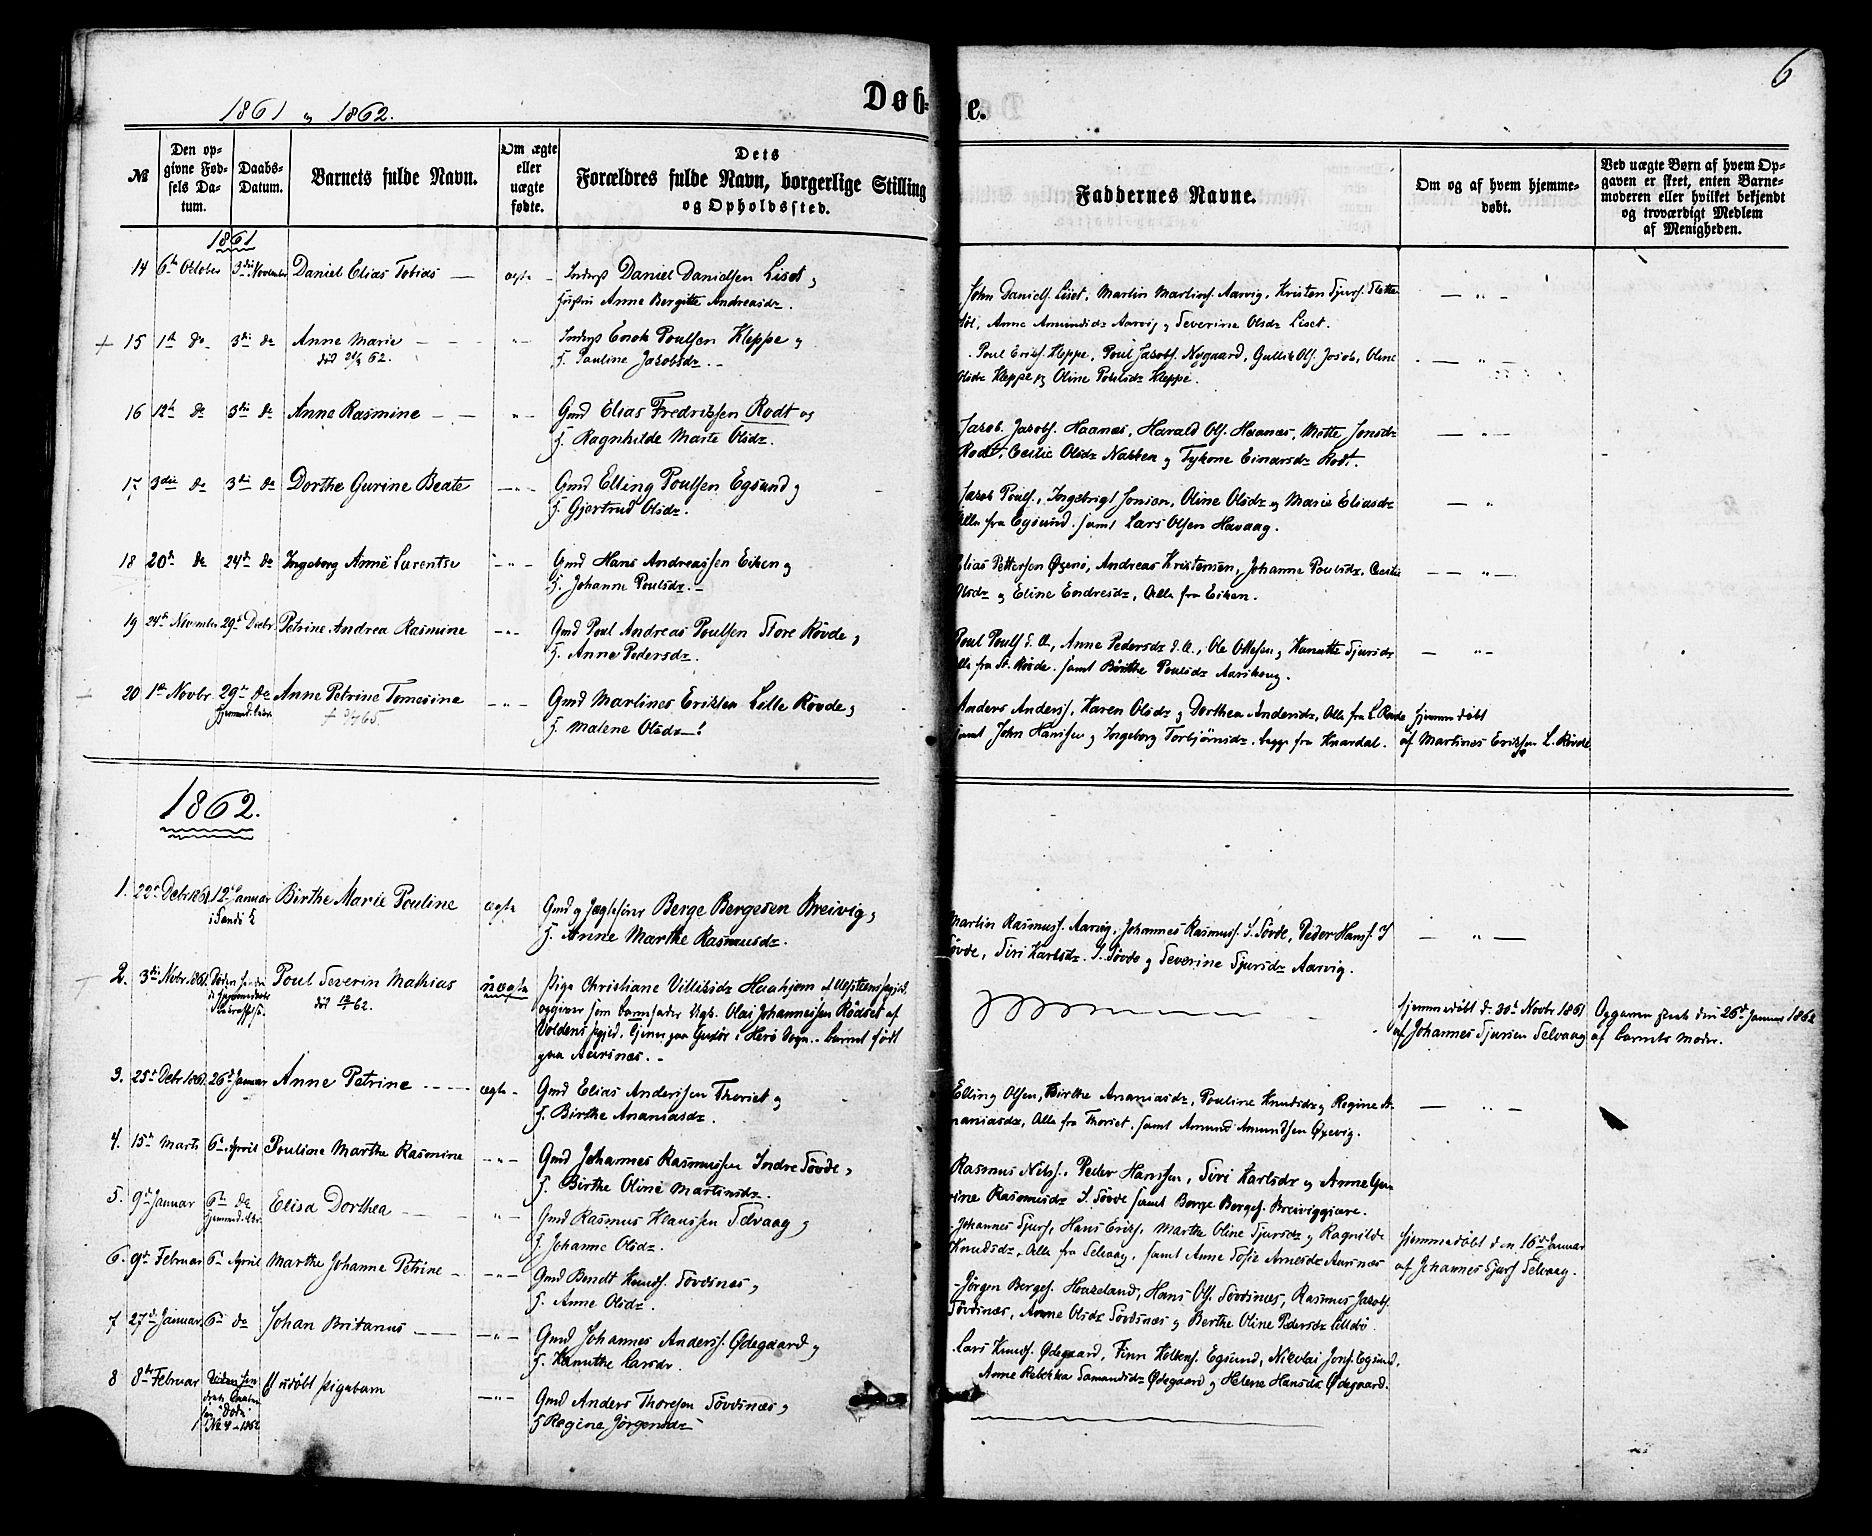 6
1861 og 1862.
Døb-
te.
№
Den op-
givne Fød-
sels Da-
tum.
Daabs-
Datum.
Barnets fulde Navn.
Om ægte
eller
uægte
fødte.
Dets
Forældres fulde Navn, borgerlige Stilling
og Opholdssted.
Faddernes Navne.
Om og af hvem hjemme-
døbt.
Ved uægte Børn af hvem Op-
gaven er skeet, enten Barne-
moderen eller hvilket bekjendt
og troværdigt Medlem
af Menigheden.
1861
14 6te October 3die November Daniel Elias Tobias ægte Inderst Daniel Danielsen Liset og
Hustru Anne Bergitte Andreasdr.
John Daniels. Liset, Martin Martins. Aarvig, Kristen Sjurs. Slette-
Anne Amundsdr Aarvig og Severine Olsdr Liset.
15 1ste do 3die do Anne Marie Inderst Enok Poulsen Kleppe og
død 62. H. Pauline Jacobsdr.
Poul Eriks. Kleppe, Poul Jacobs. Nygaard, Gullik Ols. Oline
Olsdr Kleppe og Oline Poulsdr Kleppe.
16 12te do 3die do Anne Rasmine Gmd Elias Fredriksen Rødt og
H. Ragnhilde Marte Olsdr.
Jacob Jacobs. Haanes, Harald Ols. Haanes, Mette Jonsdr
Rødt, Cecilie Olsdr Nakken og Einarsdr Rødt.
17 3die do 3die do Dorthe Gurine Beate Gmd Elling Poulsen Egsund og
H. Gjertrud Olsdr.
Jacob Pouls., Ingebrigt Jonsen, Oline Olsdr og Marie Eliasdr
Alle fra Egsund. samt Lars Olsen Havaag.
18 20de do 24de do Ingeborg Anne Laurentse Gmd Hans Andreassen Eiken og
H. Johanne Poulsdr.
Elias Pettersen Andreas Kristensen, Johanne Poulsdr. Cecilie
Olsdr og Eline Endresdr, Alle fra Eiken.
19 24de November 29de Decbr Petrine Andrea Rasmine Gmd Poul Andreas Poulsen Store Røvde og
H. Anne Pedersdr.
Poul Pouls. d. Æ., Anne Pedersdr d. Æ., Ole Ottesen og Kanutte Sjursdr
Alle fra St. Røvde. samt Birthe Poulsdr Aarskoug.
20 1ste Novbr 29de do Anne Petrine Tomesine Gmd Martines Eriksen Lille Røvde og
65 H. Malene Olsdr
Anders Anders., Karen Olsdr og Dorthea Andersdr, Alle fra L. Røvde hjemmedøbt
samt John Hansen og Ingeborg Torbjørnsdr. begge fra Knardal. af Martines Eriksen L. Røvde
1862.
1. 22de Decbr 1861 12te Januar Birthe Marie Pouline ægte Gmd og Jægtefører Berge Bergesen Breivig og
i Sande K. H. Anne Marthe Rasmusdr.
Martin Rasmuss. Aarvig, Johannes Rasmuss. I. Søvde, Peder Hans. I
Søvde, Siri Karlsdr. I. Søvde og Severine Sjursdr Aarvig.
2. 3die Novbr 1861. Poul Severin Mathias uægte Pige Christiane Villiksdr Haahjem af Ulfsteens prgjd.
død 62. opgiver som barnefader Ugk. Olai Johannesen Rødset af
Voldens prgjd. tjener paa i Herø Sogn. barnet født
paa Aarsnæs.
Hjemmedøbt d. 30te Novbr 1861
af Johannes Sjursen Selvaag
Opgaven skeet den 26de Januar 1862
af barnets Moder.
3. 25de Decbr 1861. 26de Januar Anne Petrine ægte Gmd Elias Andersen Thoriet og
H. Birthe Ananiasdr.
Elling Olsen, Birthe Ananiasdr, Pouline Knudsdr og Regine A-
naniasdr, Alle fra Thoriet. samt Amund Amundsen
4. 15de Marts 6te April Pouline Marthe Rasmine Gmd Johannes Rasmussen Indre Søvde og
H. Birthe Oline Martinsdr.
Rasmus Nils., Peder Hansen, Siri Karlsdr og Anne Gu-
rine Rasmusdr I. Søvde samt Berge Berges. Breivig
5. 9de Januar 6te do Elisa Dorthea Gmd Rasmus Klaussen Selvaag og
H. Johanne Olsdr.
Johannes Sjurs., Hans Eriks., Marthe Oline Sjursdr og Ragnilde
Knudsdr, Alle fra Selvaag, samt Anne Sofie Arnesdr Aarsnæs
Hjemmedøbt den 16de Januar
af Johannes Sjurs. Selvaag.
6. 9de Februar 6te April Marthe Johanne Petrine Gmd Bendt Knuds. Søvdsnæs og
H. Anne Olsdr.
Jørgen Berges. Hans Ols. Søvdsnæs, Rasmus Jacobs.
Søvdsnæs, Anne Olsdr Søvdsnæs og Berthe Oline Pedersdr
7 27de Januar 6te do Johan Britanus Gmd Johannes Anders. Ødegaard og
H. Kanutte Larsdr.
Lars Knuds. Ødegaard, Finn Egsund, Nikolai Jons. Egsund,
Anne Rebekka Samundsdr Ødegaard og Helene Hansdr Ødegaard.
8 8de Februar Et udøbt Pigebarn Gmd Anders Thoresen Søvdsnæs og
H Regine Jørgensdr